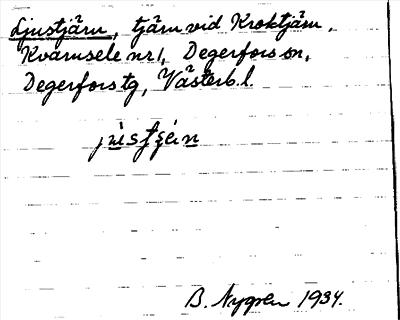 Ljustjärn, tjärn vid Kroktjärn,
Kvarnsele nr 1, Degerfors sn,
Degerfors tg, Västerb. l.
B. Nygren 1934.